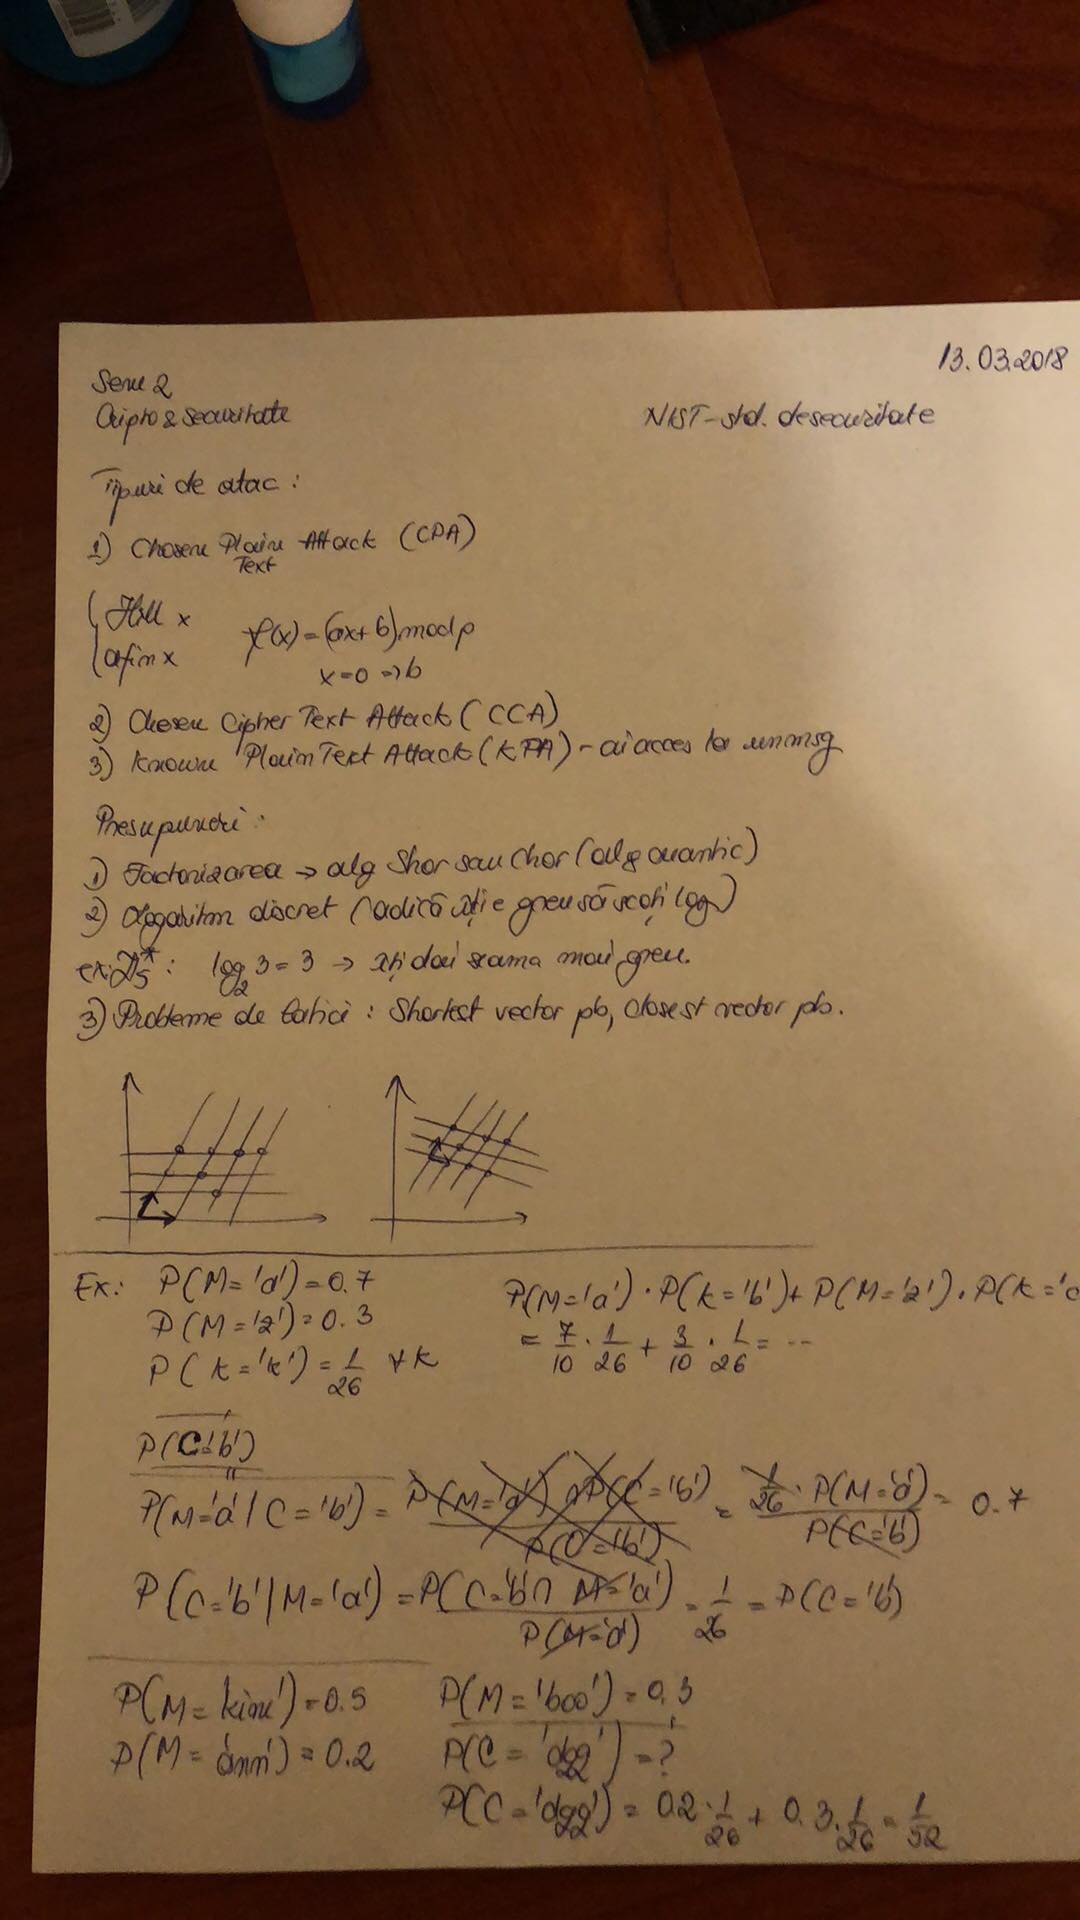 13.03.2018
Sem 2
Cripto & Securitate
NIST - std. de securitate
Tipuri de atac :
1) Chosen Plain Attack (CPA)
Text
Hill x
afin x
f(x) = (ax + b) mod p
x=0 => b
2) Chosen Cipher Text Attack (CCA)
3) Known Plain Text Attack (KPA) - ai acces la un msg
Presupuneri :
1) Factorizarea → alg Shor sau Chor (alg cuantic)
2) Logaritm discret (adică îți e greu să scoți log)
ex: Z₅* : log₂ 3 = 3 → îți dai seama mai greu.
3) Probleme de latici : Shortest vector pb, Closest vector pb.
Ex: P(M='a') = 0.7
P(M='z') = 0.3
P(K='k') = 1/26 ∀ K
P(M='a') · P(K='b') + P(M='z') . P(K='c
= 7/10 · 1/26 + 3/10 · 1/26 = ...
P(C='b')
"
P(M='a' | C='b') = P(M='a') ∩ P(C='b') / P(C='b') = 1/26 · P(M='a') / P(C='b') = 0.7
P(C='b' | M='a') = P(C='b' ∩ M='a') / P(M='a') = 1/26 = P(C='b')
P(M='kim') = 0.5
P(M='ann') = 0.2
P(M='boo') = 0.3
P(C='dgg') = ?
P(C='dgg') = 0.2 · 1/26 + 0.3 · 1/26 = 1/52